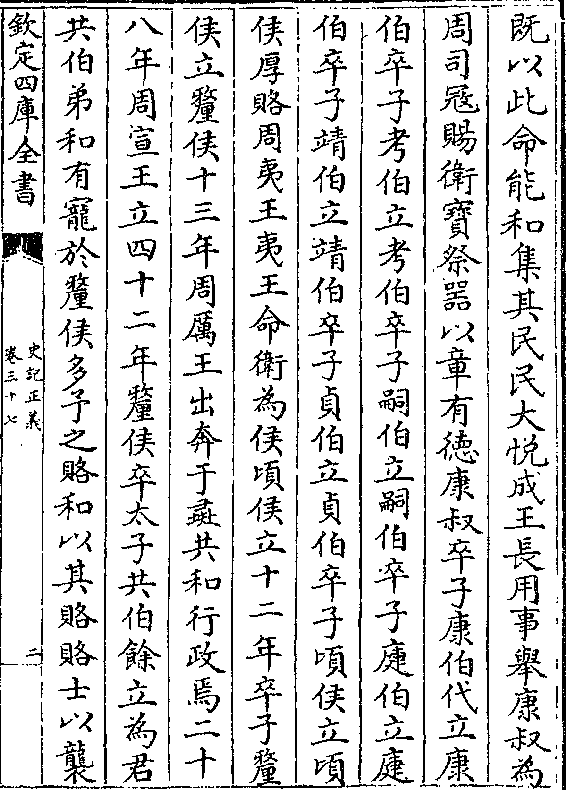 既以此命能和集其民民大悅成王長用事舉康叔為
周司寇賜衛寶祭器以章有德康叔卒子康伯代立康
伯卒子考伯立考伯卒子嗣伯立嗣伯卒子疌伯立疌
伯卒子靖伯立靖伯卒子貞伯立貞伯卒子頃侯立頃
侯厚賂周夷王夷王命衛為侯頃侯立十二年卒子釐
侯立釐侯十三年周厲王出奔于彘共和行政焉二十
八年周宣王立四十二年釐侯卒太子共伯餘立為君
共伯弟和有寵於釐侯多予之賂和以其賂賂士以襲
欽定四庫全書
史記正義
卷三十七
二